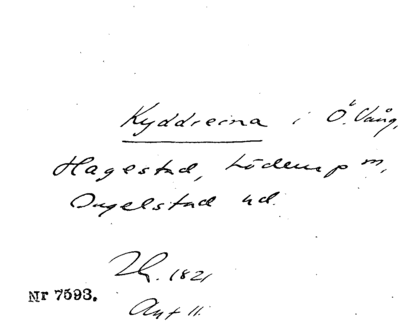 Kyddreina i Ö. Vång,
Hagestad, Löderup m,
Ingelstad hd.
1821
Nr 7593.
Akt 11.